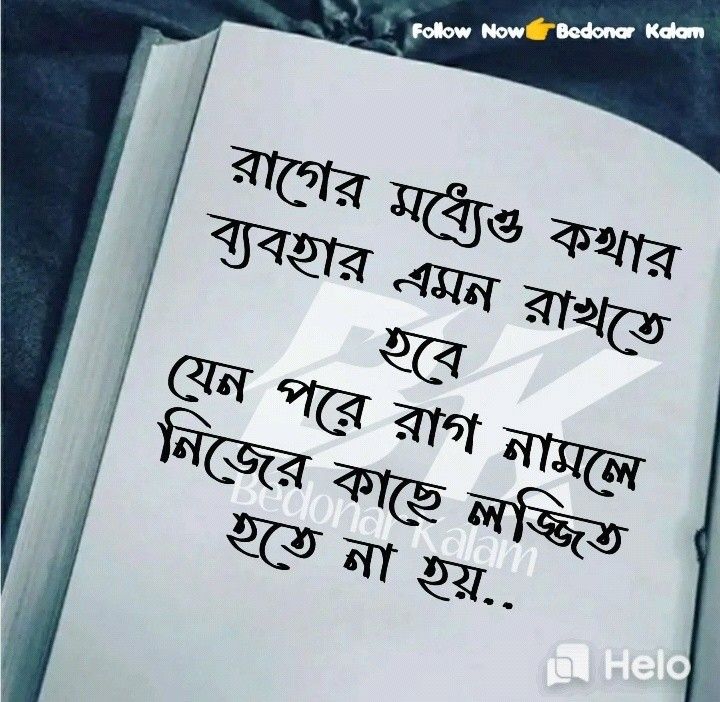 Follow Now👉Bedonar Kalam
রাগের মধ্যেও কথার
ব্যবহার এমন রাখতে
হবে
যেন পরে রাগ নামলে
নিজের কাছে লজ্জিত
হতে না হয়..
BK
Bedonar Kalam
Helo